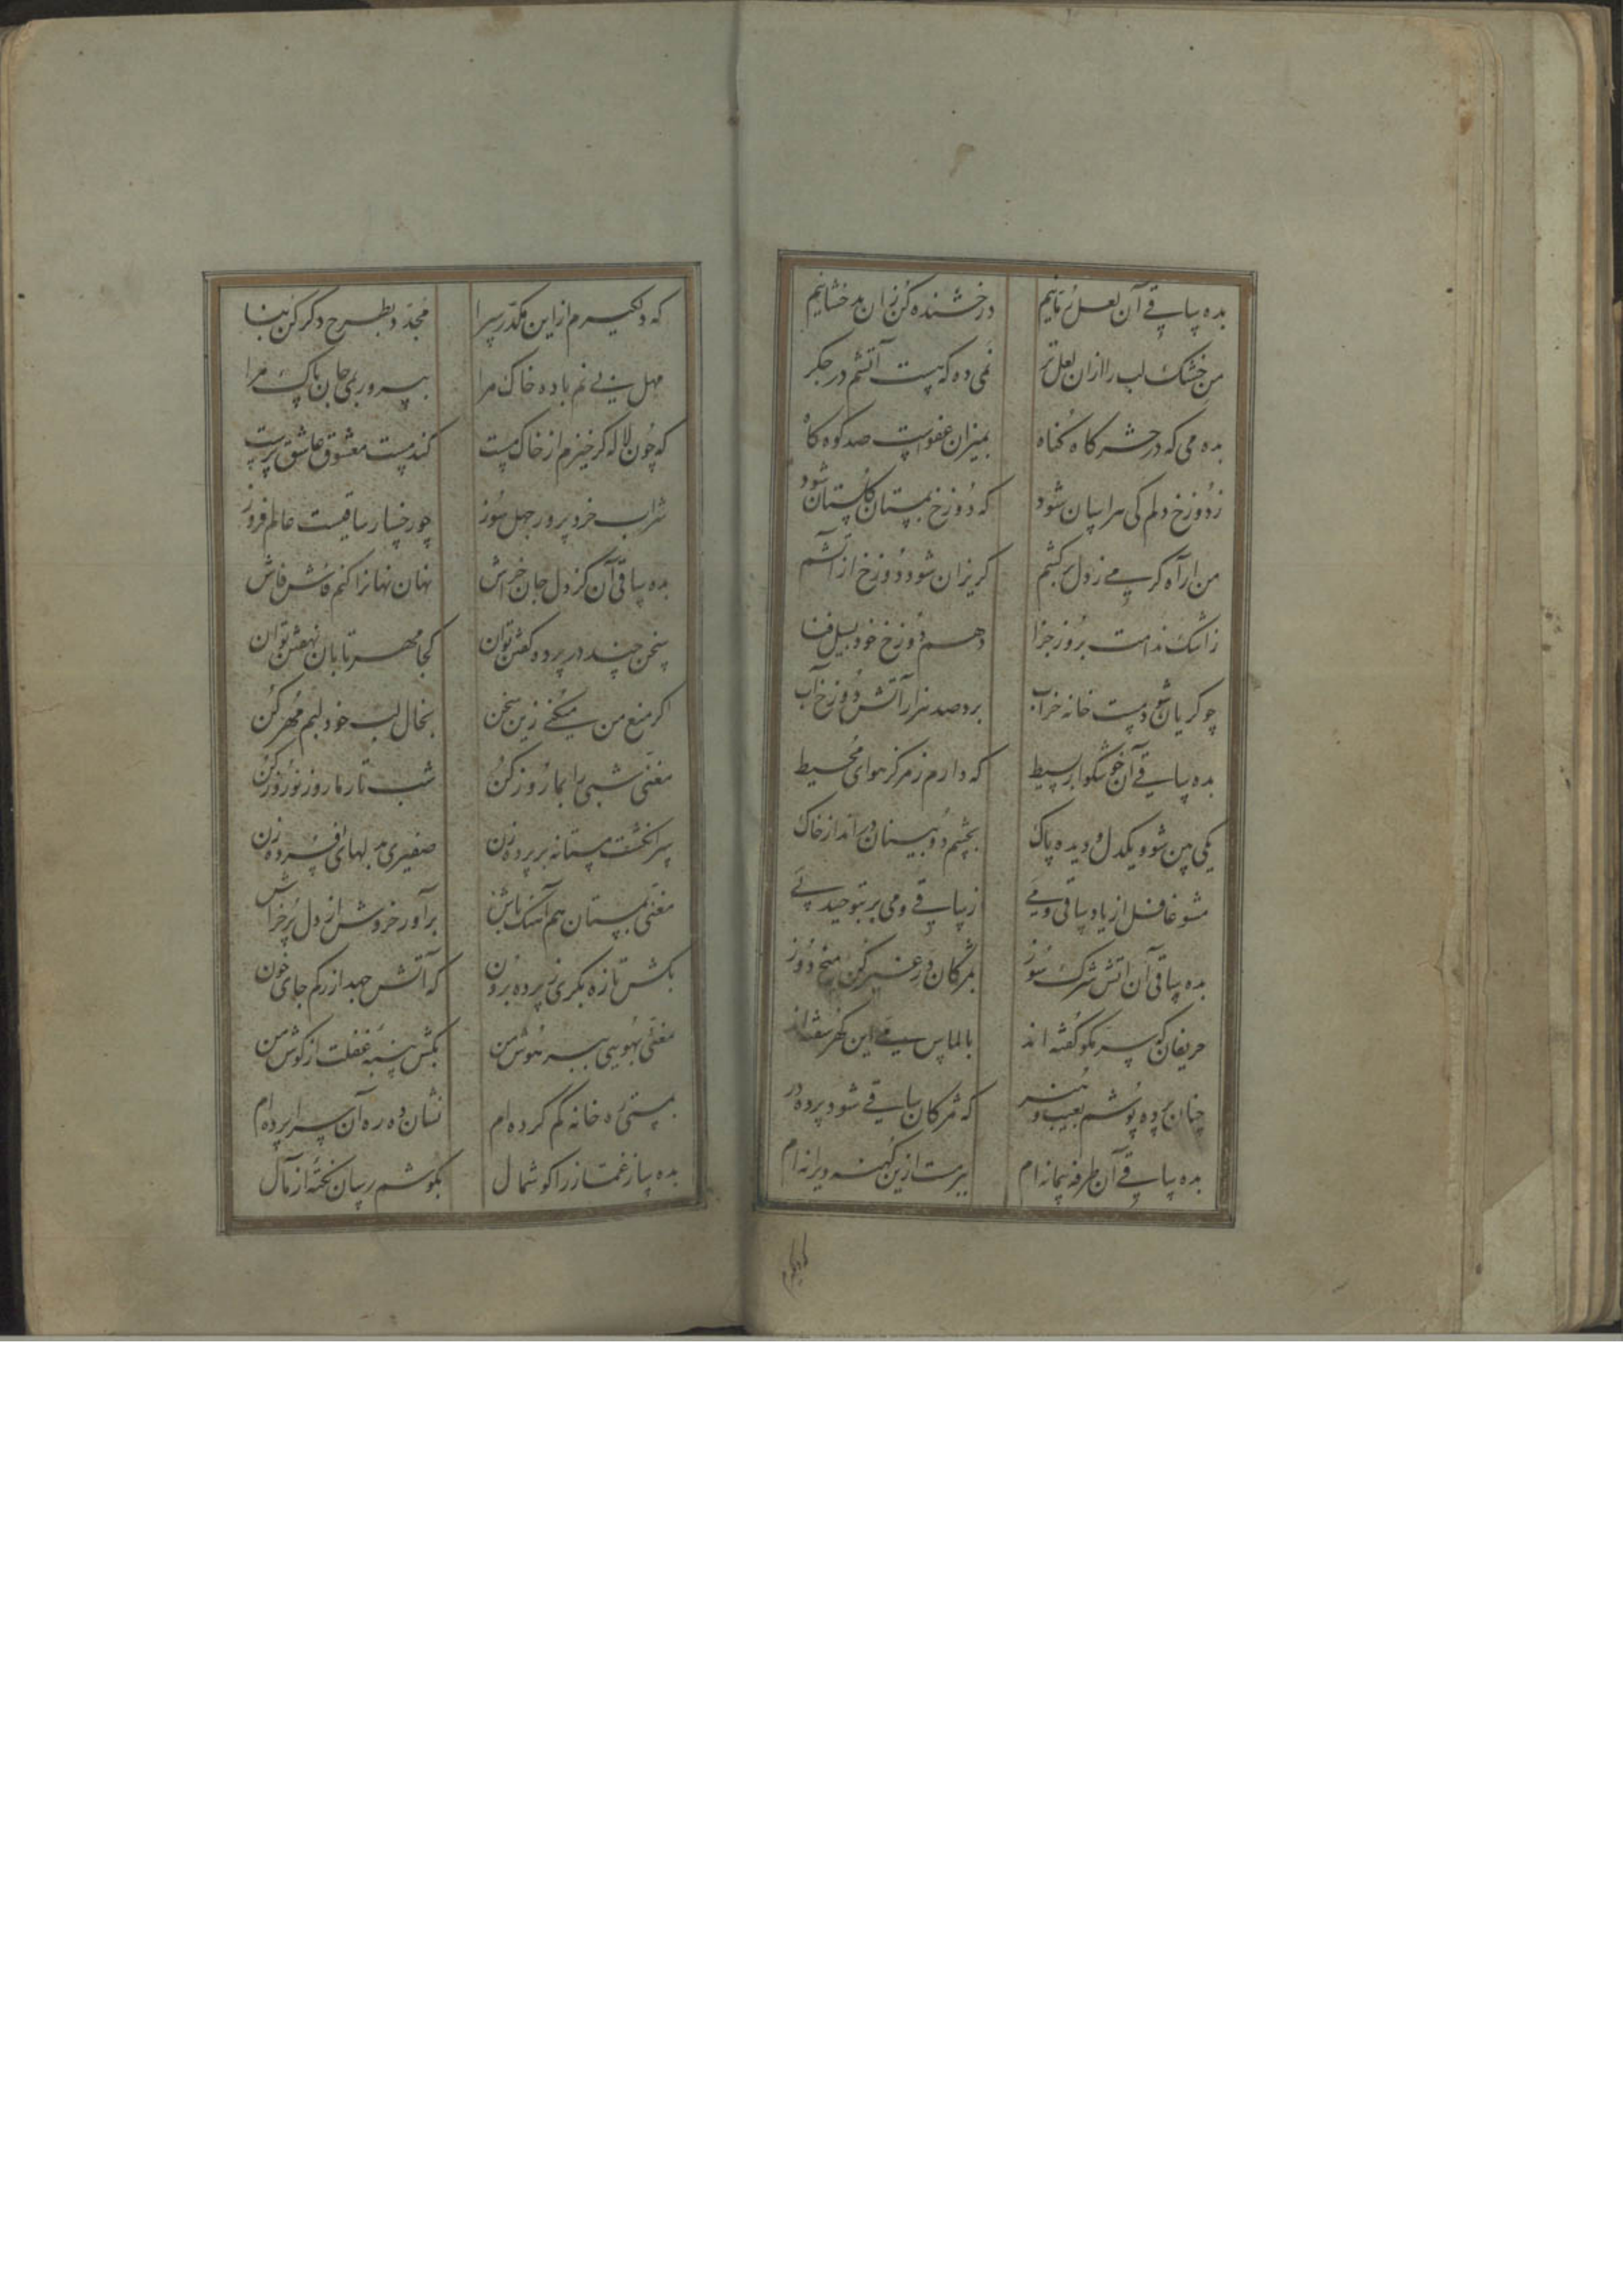 بده ساقی آن لعل رمانیم درخشنده کن زان بدخشانیم
من خشک لب را ازان لعل تر نمی ده که هست آتشم در جکر
بده می که در حشرکاه کناه بمیزان عفوست صد کوه کاه
ز دوزخ دلم کی هراسان شود که دوزخ بمستان کلستان شود
من ار آه کرمی ز دل برکشم کریزان شود دوزخ از آتشم
ز اشک ندامت بروز جزا دهم دوزخ خود بسیل فنا
چو کریان شود مست خانه خراب برد صد هزار آتش دوزخ آب
بده ساقی آن خوشکوار بسیط که دارم ز مرکز هوای محیط
یکی بین شو و یکدل و دیده پاک بچشم دو بینان در انداز خاک
مشو غافل از یاد ساقی و می ز ساقی و می بر بتوحید پی
بده ساقی آن آتش شرک سوز بمژکان در غیر کن میخ دوز
حریفان که سر مکو کفته اند بالماس می این کهر سفته اند
چنان پرده پوشم بعیب و هنر که مژکان ساقی شود پرده در
بده ساقی آن طرفه پیمانه ام ببر مست ازین کهنه ویرانه ام
که دلکیرم
که دلکیرم از این مکدر سرا مجدد بطرح دکر کن بنا
مهل بی نم باده خاک مرا بپرور بمی جان پاک مرا
که چون لاله کر خیزم از خاک مست کند مست معشوق عاشق پرست
شراب خرد پرور جهل سوز چو رخسار ساقیست عالم فروز
بده ساقی آن کز دل جان خراش نهان نهانرا کنم فاش فاش
سخن چند در پرده کفتن توان کجا مهر تابان نهفتن توان
اکر منع من میکنی زین سخن بخال لب خود لبم مهر کن
مغنی شبی را بما روز کن شب تار ما روز نوروز کن
سر انکشت مستانه بر پرده زن صفیری بدلهای افسرده زن
مغنی بمستان هم آهنک باش برآور خروش از دل پر خراش
بکش تازه بکری ز پرده برون که آتش جهد از رکم جای خون
مغنی بهویی ببر هوش من بکش پنبه غفلت از کوش من
بمستی ره خانه کم کرده ام نشان ده ره آن سراپرده ام
بده ساز غمساز را کوشمال بکوشم رسان نکته از مآل